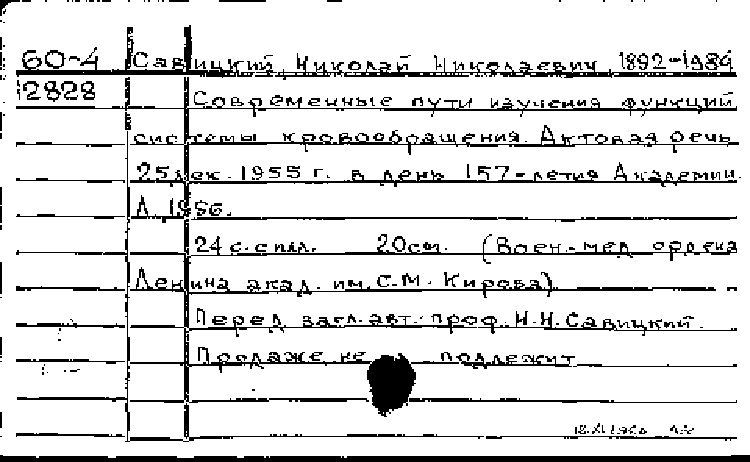 60-4 Савицкий, Николай Николаевич, 1892-1984
12828 Современные пути изучения функций
системы кровообращения. Актовая речь
25 дек. 1955 г. в день 157-летия Академии.
Л., 1956.
24 с. с илл. 20 см. (Воен.-мед. ордена
Ленина акад. им. С.М. Кирова)
Перед загл. авт.: проф. Н.Н. Савицкий.
Продаже не подлежит